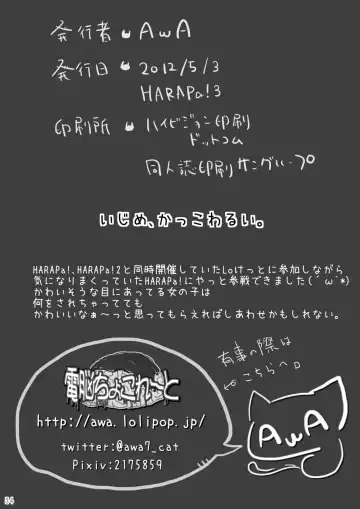 発行者 AwA
発行日 2012/5/3
HARAPa!3
印刷所 ハイビジョン印刷
ドットコム
同人誌印刷サングループ
いじめ、かっこわるい。
HARAPa!、HARAPa!2と同時開催していたLoけっとに参加しながら
気になりまくっていたHARAPa!にやっと参戦できました(´ω`*)
かわいそうな目にあってる女の子は
何をされちゃってても
かわいいなぁ~っと思ってもらえればしあわせかもしれない。
有事の際は
こちらへ。
電脳ちょこれーと
http://awa.lolipop.jp/
twitter:@awa7_cat
Pixiv:2175859
AwA